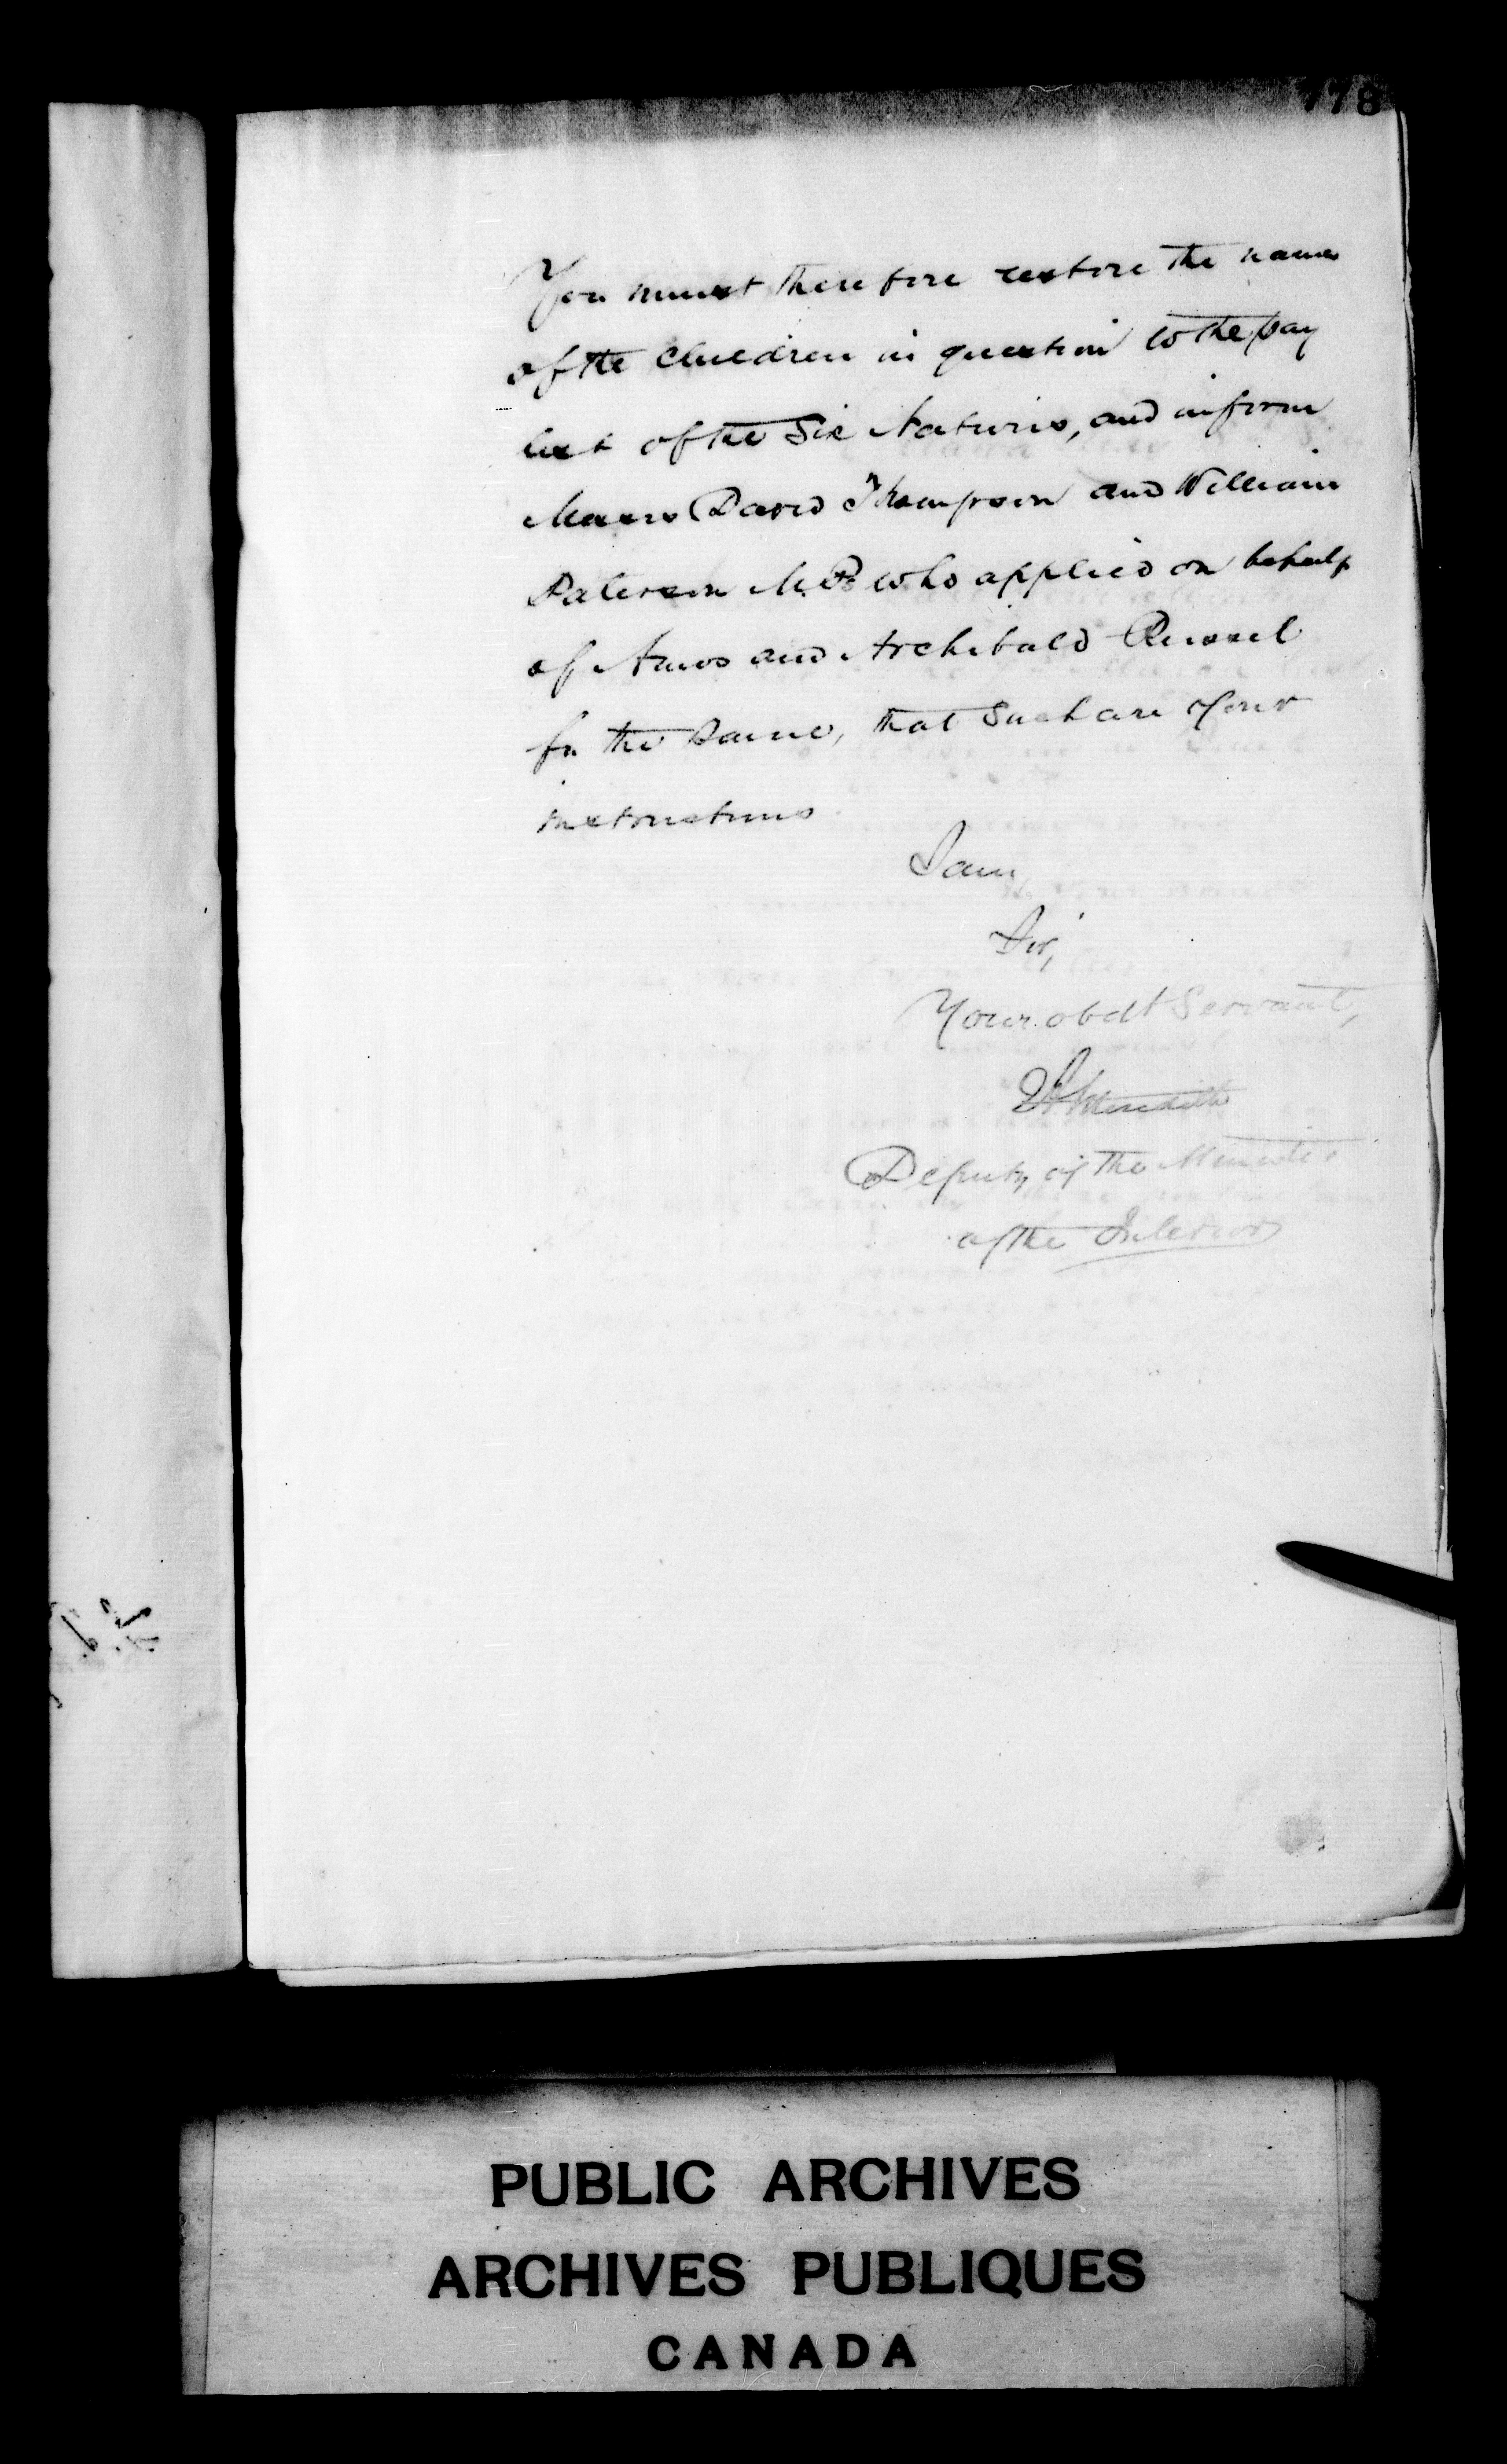 778
You must therefore restore the names
of the children in question to the pay
list of the Six Nations, and inform
Messrs David Thompson and William
Paterson M.Ps who applied on behalf
of Amos and Archibald Russel
for the same, that such are your
instructions
I am,
Sir,
Your obdt Servant,
Meredith
Deputy of the Minister
of the Interior
PUBLIC ARCHIVES
ARCHIVES PUBLIQUES
CANADA